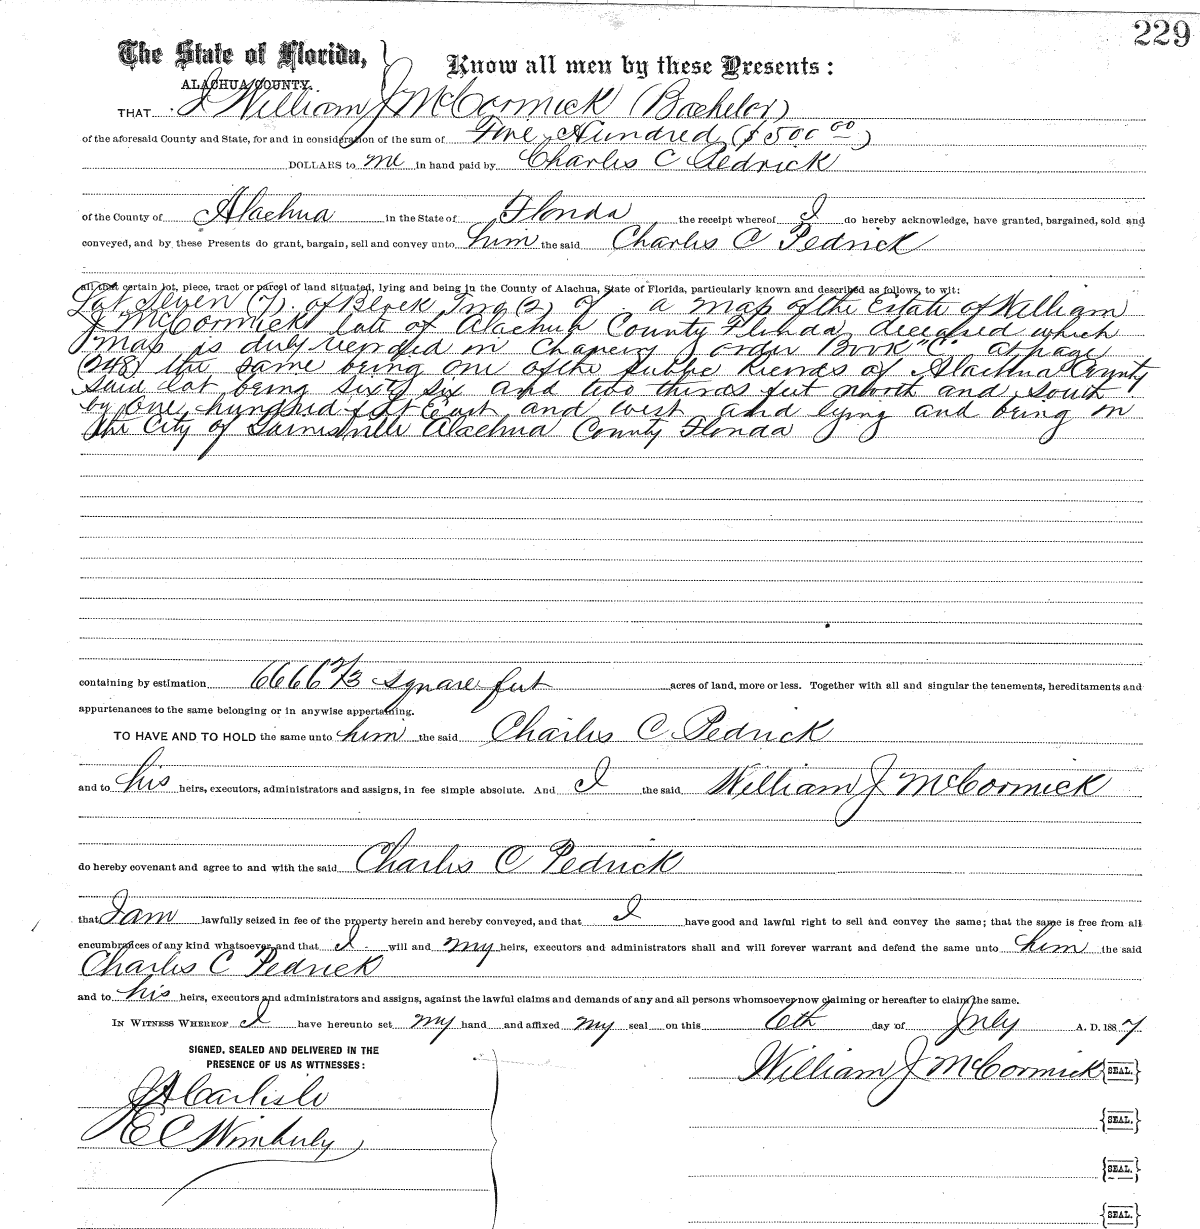 229
The State of Florida,
ALACHUA COUNTY.
Know all men by these Presents:
THAT I William J McCormick (Bachelor)
of the aforesaid County and State, for and in consideration of the sum of Five Hundred ($500 00)
DOLLARS to me in hand paid by Charles C Pedrick
of the County of Alachua in the State of Florida the receipt whereof I do hereby acknowledge, have granted, bargained, sold and
conveyed, and by these Presents do grant, bargain, sell and convey unto him the said Charles C Pedrick
all that certain lot, piece, tract or parcel of land situated, lying and being in the County of Alachua, State of Florida, particularly known and described as follows, to wit:
Lot Seven (7). of Block Two (2) of a map of the Estate of William
J McCormick late of Alachua County Florida deceased which
map is duly recorded in Chancery order Book "C" at page
(248) the same being one of the public Records of Alachua County
said lot being sixty six and two thirds feet north and south
by one hundred feet East and west and lying and being in
the City of Gainesville Alachua County Florida
containing by estimation 6666 2/3 square feet acres of land, more or less. Together with all and singular the tenements, hereditaments and
appurtenances to the same belonging or in anywise appertaining.
TO HAVE AND TO HOLD the same unto him the said Charles C Pedrick
and to his heirs, executors, administrators and assigns, in fee simple absolute. And I the said William J McCormick
do hereby covenant and agree to and with the said Charles C Pedrick
that I am lawfully seized in fee of the property herein and hereby conveyed, and that I have good and lawful right to sell and convey the same; that the same is free from all
encumbrances of any kind whatsoever and that I will and my heirs, executors and administrators shall and will forever warrant and defend the same unto him the said
Charles C Pedrick
and to his heirs, executors and administrators and assigns, against the lawful claims and demands of any and all persons whomsoever now claiming or hereafter to claim the same.
IN WITNESS WHEREOF I have hereunto set my hand and affixed my seal on this 6th day of July A. D. 1887
SIGNED, SEALED AND DELIVERED IN THE
PRESENCE OF US AS WITNESSES:
William J McCormick {SEAL.}
J A Carlisle
{SEAL.}
E C Wimberly
{SEAL.}
{SEAL.}